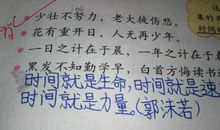 nǔ
少壮不努力，老大徒伤悲。
花有重开日，人无再少年。
一日之计在于晨，一年之计在于
黑发不知勤学早，白首方悔读书
时间就是生命，时间就是速
时间就是力量。（郭沫若）